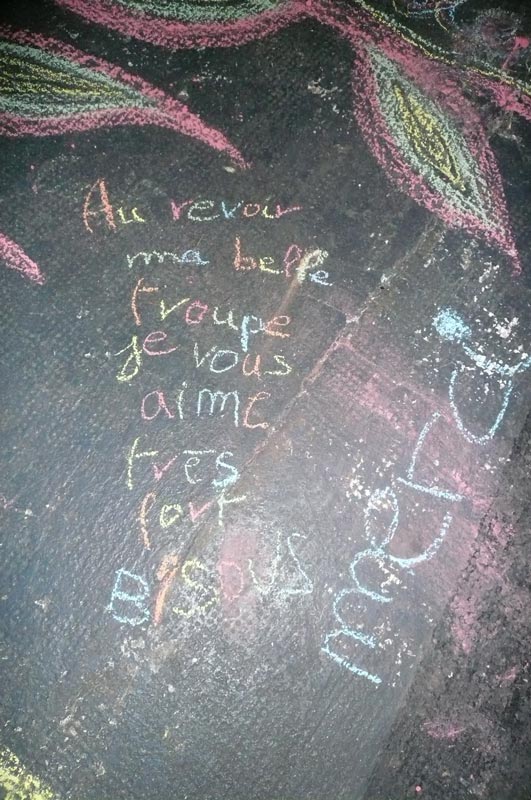 Au revoir
ma belle
troupe
je vous
aime
très
fort
Bisous